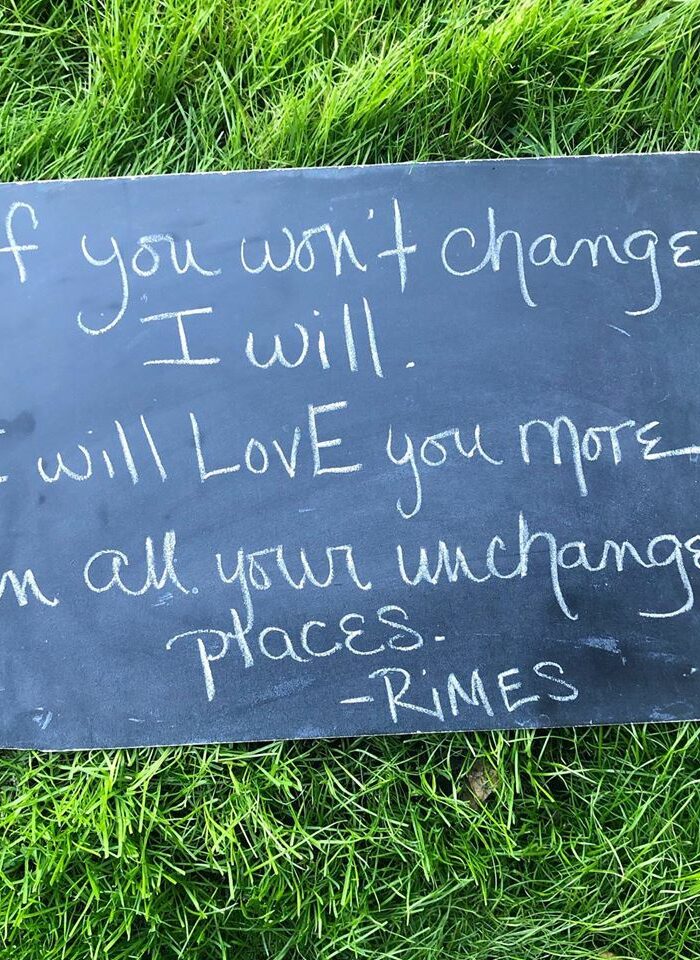 f you won't change
I will.
I will LovE you more
in all your unchange
places.
-RiMES